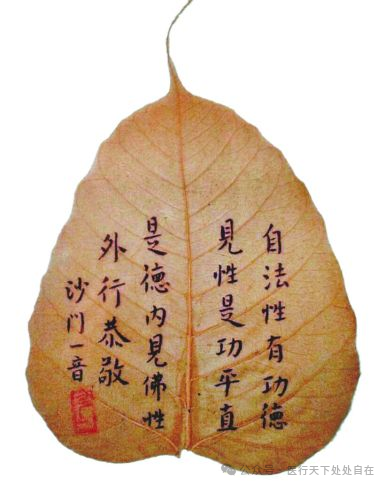 自法性有功德
見性是功平直
是德内見佛性
外行恭敬
沙门一音
公众号 · 医行天下处处自在